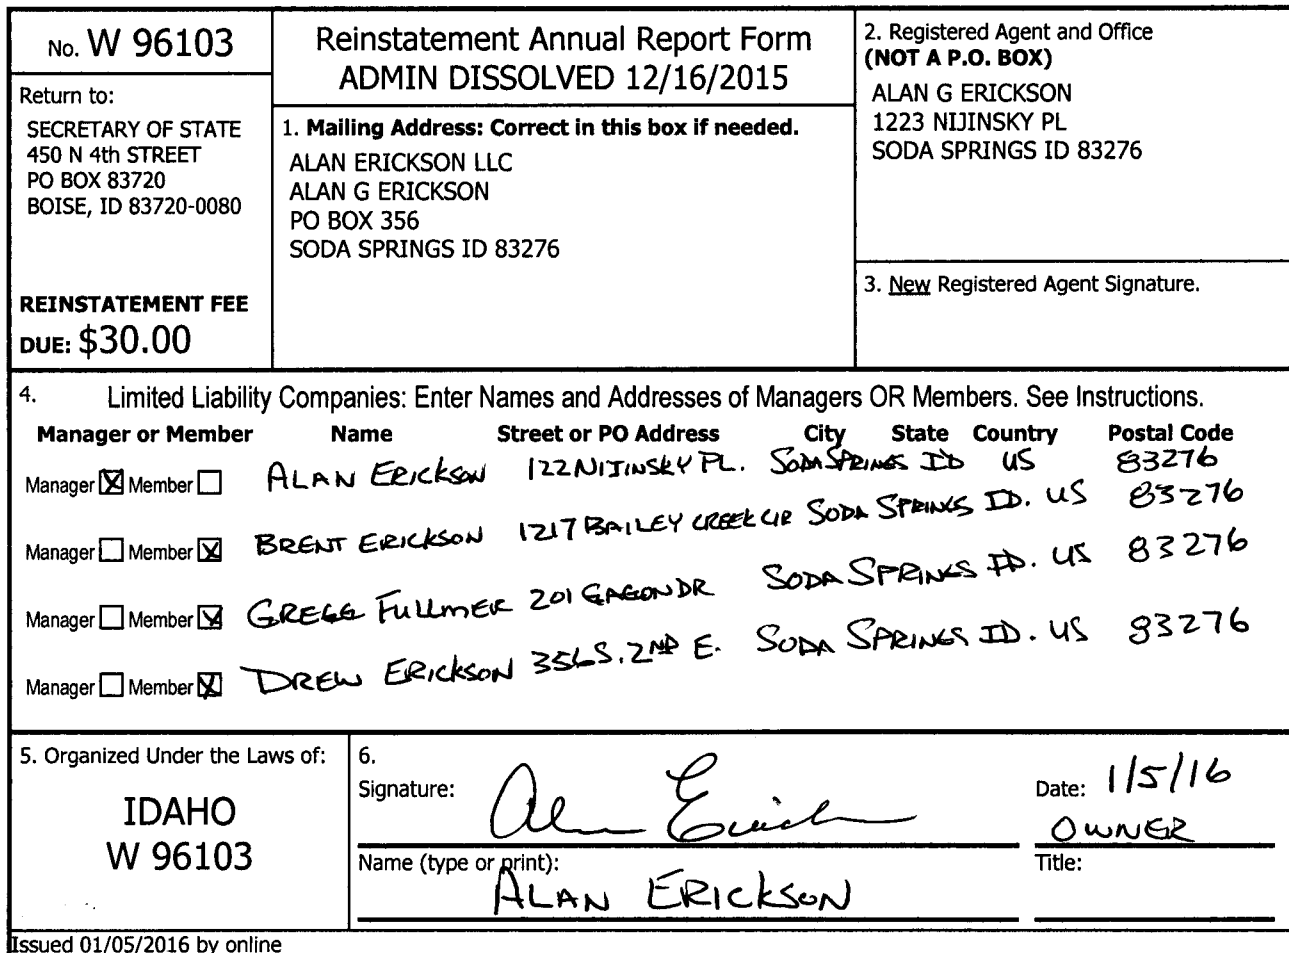 No. W 96103
Return to:
SECRETARY OF STATE
450 N 4th STREET
PO BOX 83720
BOISE, ID 83720-0080
REINSTATEMENT FEE
DUE: $30.00
Reinstatement Annual Report Form
ADMIN DISSOLVED 12/16/2015
1. Mailing Address: Correct in this box if needed.
ALAN ERICKSON LLC
ALAN G ERICKSON
PO BOX 356
SODA SPRINGS ID 83276
2. Registered Agent and Office
(NOT A P.O. BOX)
ALAN G ERICKSON
1223 NIJINSKY PL
SODA SPRINGS ID 83276
3. New Registered Agent Signature.
4. Limited Liability Companies: Enter Names and Addresses of Managers OR Members. See Instructions.
Manager or Member Name Street or PO Address City State Country Postal Code
Manager Member ALAN ERICKSON 122 NIJINSKY PL. SODA SPRINGS ID US 83276
Manager Member BRENT ERICKSON 1217 BAILEY CREEK CIR SODA SPRINGS ID. US 83276
Manager Member GREGG FULLMER 201 GAGON DR SODA SPRINGS ID. US 83276
Manager Member DREW ERICKSON 356 S. 2ND E. SODA SPRINGS ID. US 83276
5. Organized Under the Laws of:
IDAHO
W 96103
6.
Signature: Alan Erickson
Date: 1/5/16
OWNER
Name (type or print):
ALAN ERICKSON
Title:
Issued 01/05/2016 by online